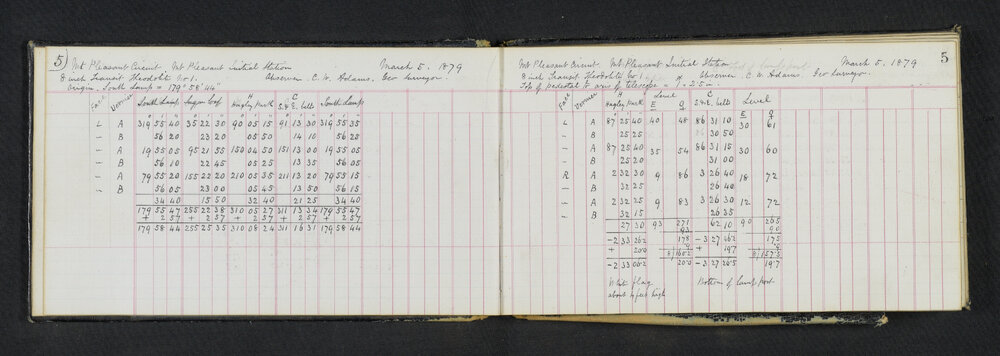 5) Mt Pleasant Circuit Mt Pleasant Initial Station March 5. 1879
8 inch Transit Theodolite No 1. Observer. C. W. Adams. Geo Surveyor.
Origin. South Lamp = 179° 58' 44"
Face Vernier South Lamp Hagley Park S.&E. belt South Lamp
H C
L A 319 55 40 35 22 30 90 05 15 91 13 30 319 55 35
– B 56 20 23 20 05 50 14 10 56 25
– A 19 55 05 95 21 55 150 04 50 151 13 00 19 55 05
– B 56 10 22 45 05 25 13 35 56 05
– A 79 55 20 155 22 20 210 05 35 211 13 20 79 55 15
– B 56 05 23 00 05 45 13 50 56 15
34 40 15 50 32 40 21 25 34 40
179 55 47 255 22 38 310 05 27 311 13 34 179 55 47
+ 2 57 + 2 57 + 2 57 + 2 57 + 2 57
179 58 44 255 25 35 310 08 24 311 16 31 179 58 44
Mt Pleasant Circuit Mt Pleasant Initial Station March 5. 1879 5
8 inch Transit Theodolite No 1 Observer. C. W. Adams. Geo Surveyor.
Top of pedestal to axis of telescope = 1.25 in.
Face Vernier H Hagley Park Level E O C S.&E. belt Level E O
L A 87 25 40 40 48 86 31 10 30 61
– B 25 25 30 50
– A 87 25 40 35 54 86 31 15 30 60
– B 25 20 31 00
R A 2 32 30 9 86 3 26 40 18 72
– B 32 25 26 40
– A 2 32 25 9 83 3 26 30 12 72
– B 32 15 26 35
27 30 93 271 62 10 90 265
93 90
-2 33 26.2 178 -3 27 46.2 175
+ 20.0 9 + 19.7 9
8)160.2 8)157.5
-2 33 06.2 20.0 -3 27 26.5 19.7
White flag Bottom of lamp post
about 4 feet high